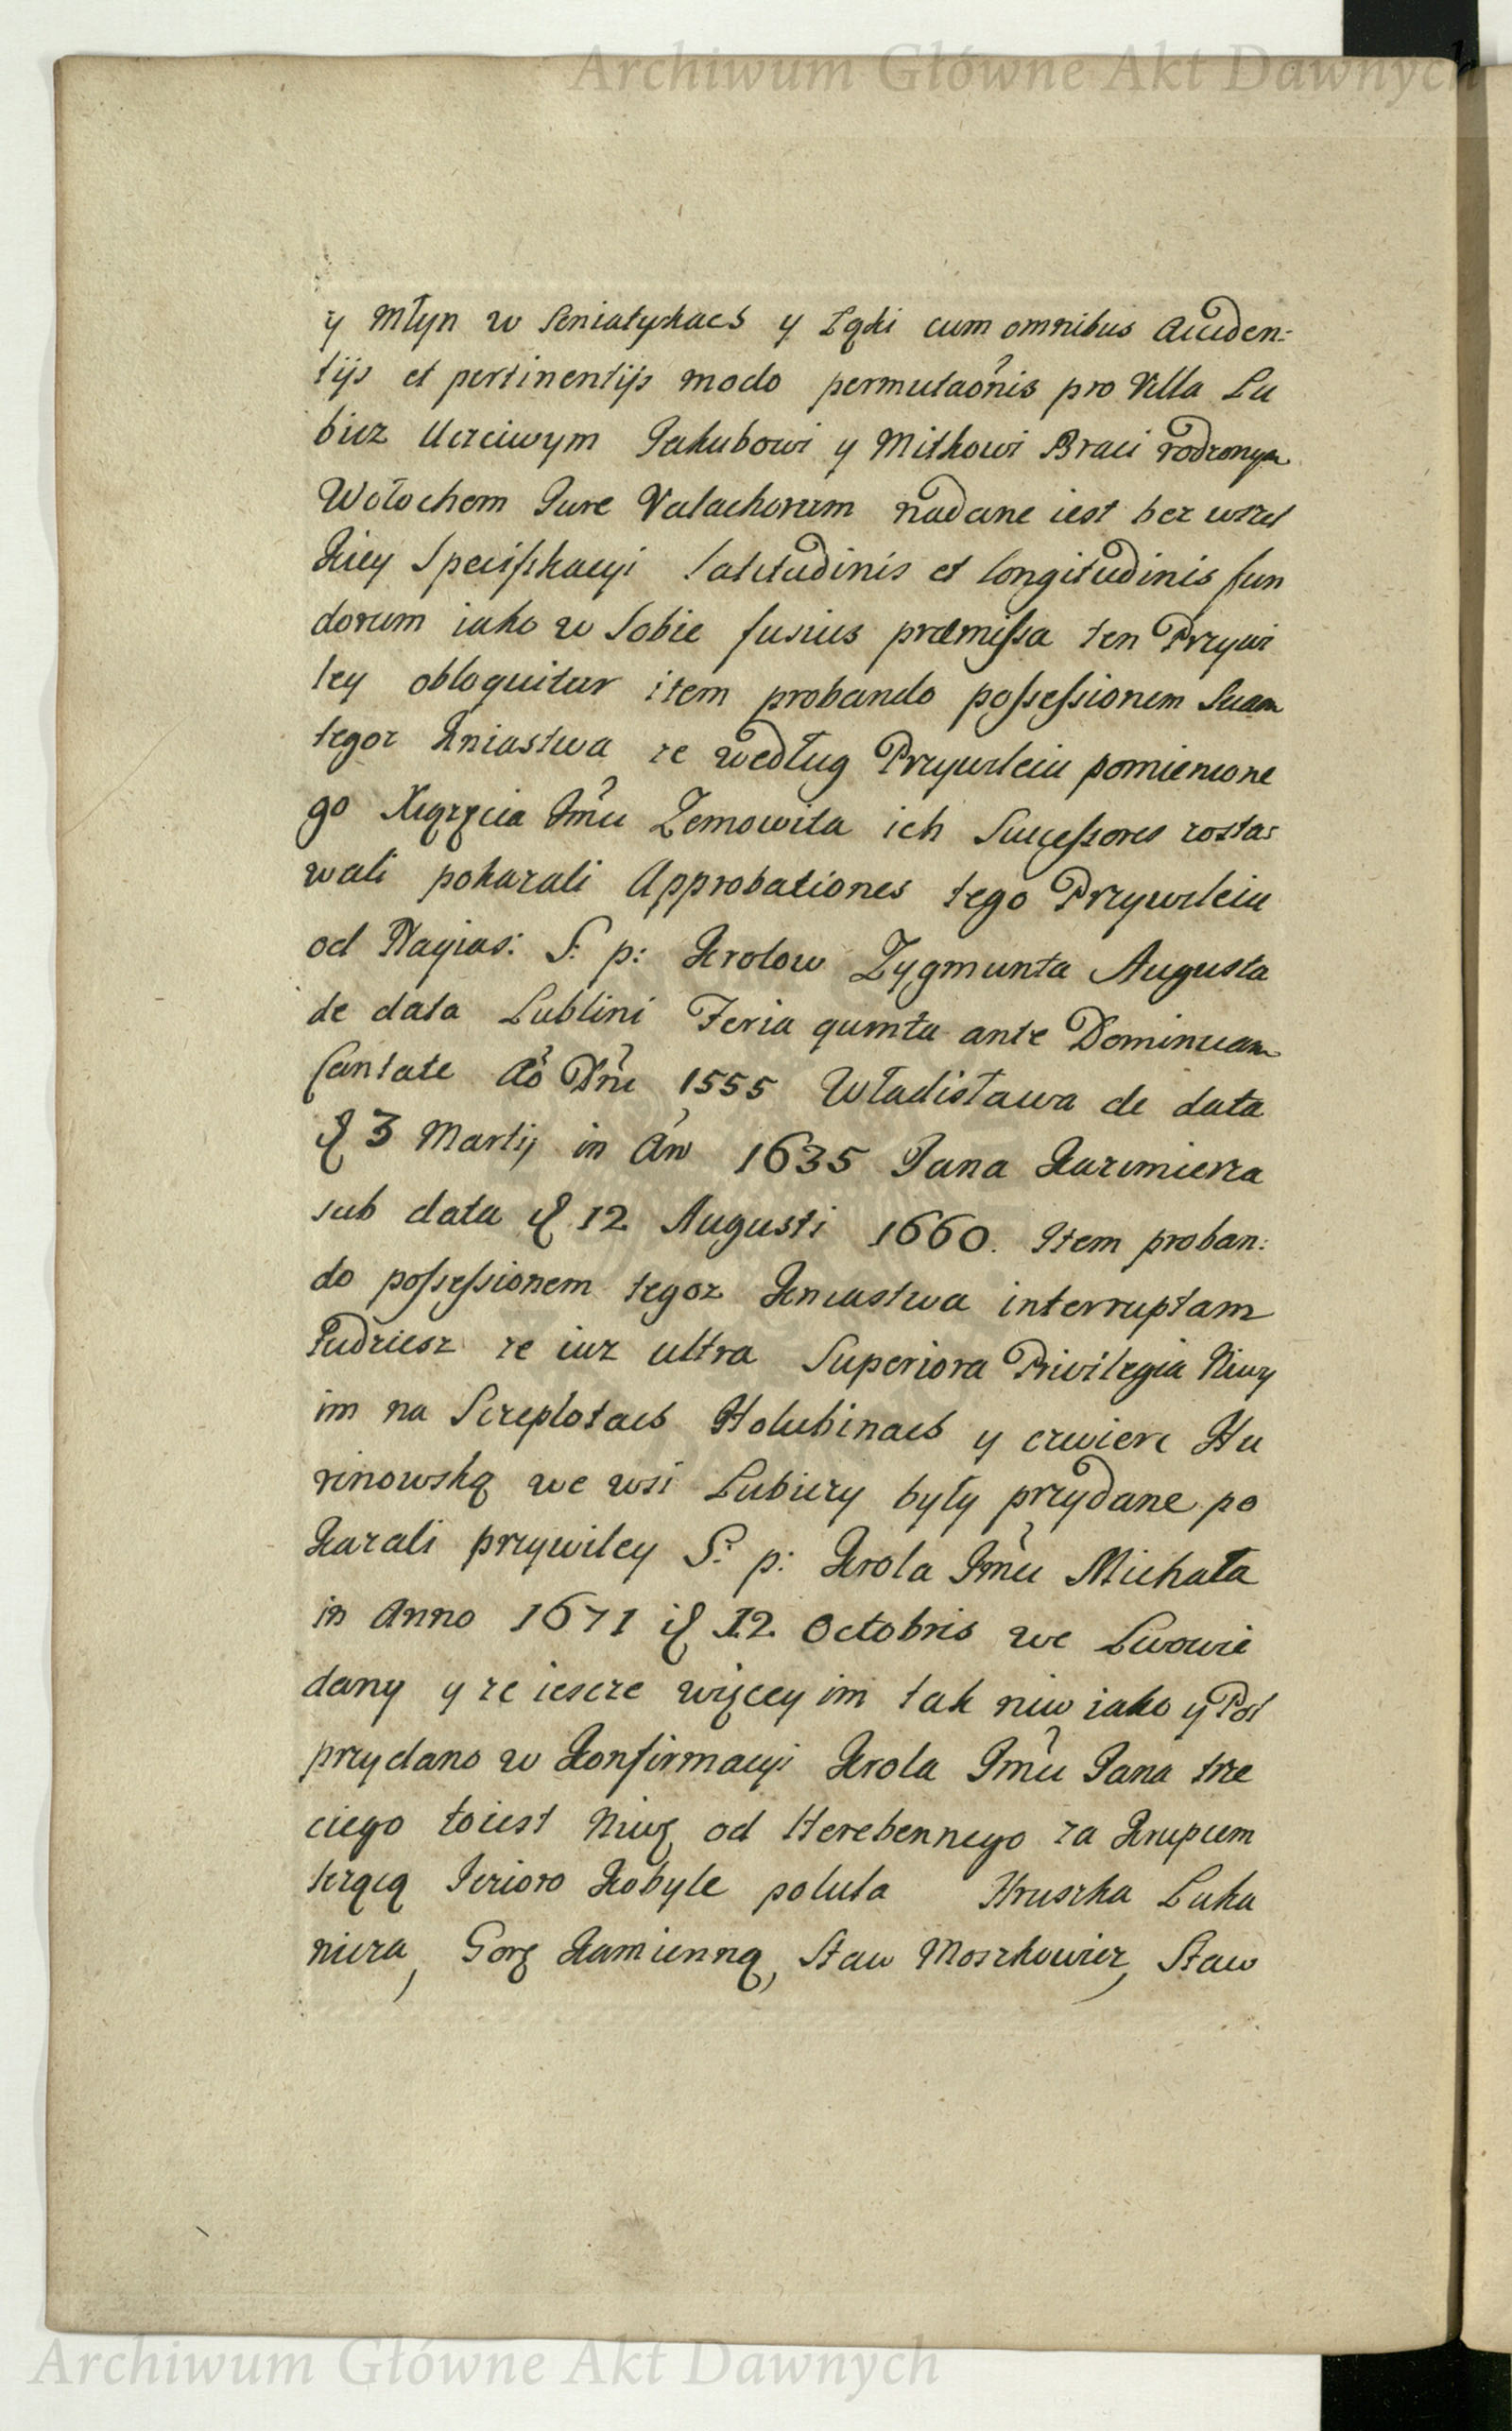 Archiwum Główne Akt Dawnych
y Młyn w Seniatyckach y Łąki cum omnibus Acciden:
tijs et pertinentijs modo permutaonis pro Villa Lu
bicz Uczciwym Jakubowi y Mitkowi Braci rodzonym
Wołochom Jure Valachorum nadane iest bez wszel
kiey Specifikacyi latitudinis et longitudinis fun
dorum iako w Sobie fusius præmissa ten Przywi
ley obloquitur item probando possessionem Suam
tegoz Kniastwa ze według Przywileiu pomienione
go Xiązęcia Jmci Zemowita ich Successores zosta:
wali pokazali Approbationes tego Przywileiu
od Nayias: S: p: Krolow Zygmunta Augusta
de data Lublini Feria quinta ante Dominicam
Cantate Ao Dni 1555 Władisława de data
d 3 Martij in An 1635 Jana Kazimierza
sub data d 12 Augusti 1660. Item proban:
do possessionem tegoz Kniastwa interruptam
Tudziesz ze iuz ultra Superiora Privilegia Niwy
im na Screplotach Holubinach y czwierc Hu
rinowską we wsi Lubiczy były przydane po
kazali przywiley S: p: Krola Jmci Michała
in Anno 1671 d 12 Octobris we Lwowie
dany y ze iescze więcey im tak niw iako y Pol
przydano w Konfirmacyi Krola Jmci Jana trze
ciego toiest Niwę od Herebennego za Krupcem
lezącą Jezioro Kobyle poluta Hruszka Luka
nicza, Gorę Kamienną, Staw Moszkowicz, Staw
Archiwum Główne Akt Dawnych